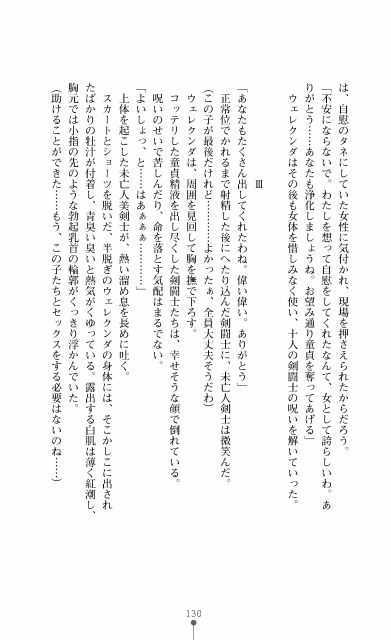 は、自慰のタネにしていた女性に気付かれ、現場を押さえられたからだろう。
「不安にならないで。わたしを想って自慰をしてくれたなんて、女として誇らしいわ。あ
りがとう……あなたも浄化しましょうね。お望み通り童貞を奪ってあげる」
ウェレクンダはその後も女体を惜しみなく使い、十人の剣闘士の呪いを解いていった。
Ⅲ
「あなたもたくさん出してくれたわね。偉い偉い。ありがとう」
正常位でかれるまで射精した後にへたり込んだ剣闘士に、未亡人剣士は微笑んだ。
(この子が最後だけれど…………よかったぁ、全員大丈夫そうだわ)
ウェレクンダは、周囲を見回して胸を撫で下ろす。
コッテリした童貞精液を出し尽くした剣闘士たちは、幸せそうな顔で倒れている。
呪いのせいで苦しんだり、命を落とす気配はまるでない。
「よいしょっ、と……はあぁぁぁ…………」
上体を起こした未亡人美剣士が、熱い溜め息を長めに吐く。
スカートとショーツを脱いだ、半脱ぎのウェレクンダの身体には、そこかしこに出され
たばかりの牡汁が付着し、青臭い臭いと熱気がくゆっている。露出する白肌は薄く紅潮し、
胸元では小指の先のような勃起乳首の輪郭がくっきり浮かんでいた。
(助けることができた……もう、この子たちとセックスをする必要はないのね……)
130